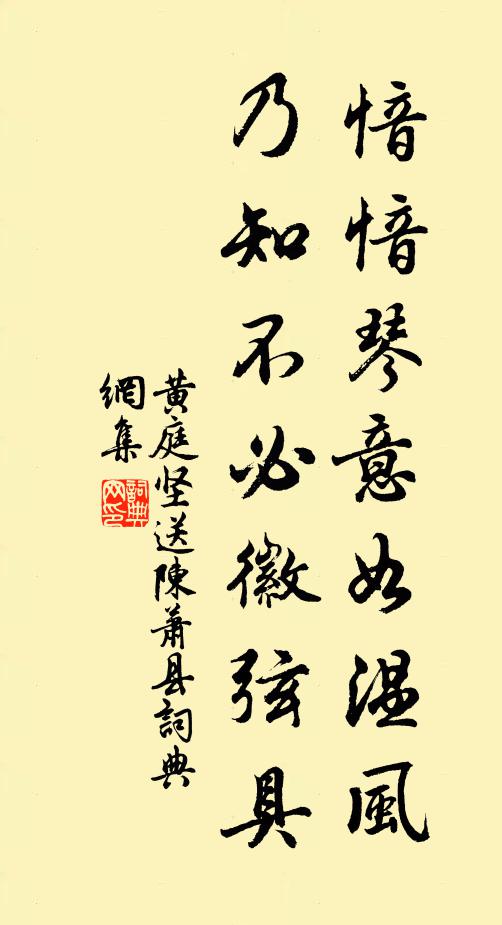 愔愔琴意如温風
乃知不必徽弦具
黄庭坚送陳蕭县詞典
網集
詞典
网印